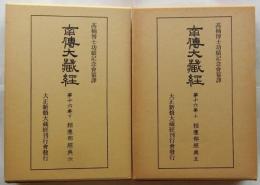 高楠博士功績記念會纂譯
南傳大藏經
第十六卷上 相應部經典五
大正新脩大藏經刊行會發行
高楠博士功績記念會纂譯
南傳大藏經
第十六卷下 相應部經典六
大正新脩大藏經刊行會發行